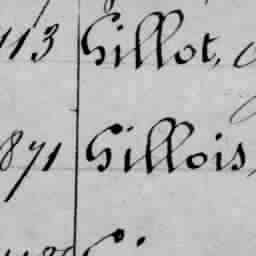 113 Gillot,
871 Gillois,